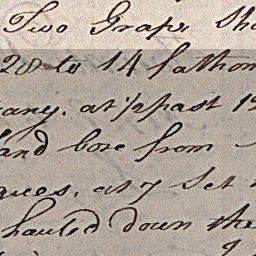 Two Grape Sho
28 to 14 fathom
any. at 1/2 past 1
and bore from
at 7 Set
hauled down the